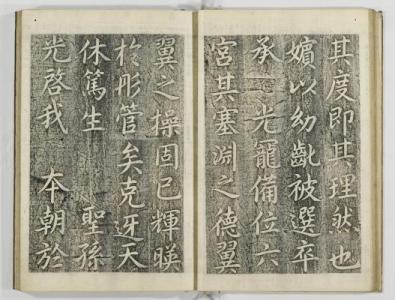 其度即其理然也
嬪以幼齔被選卒
承　光寵備位六
宮其塞淵之德翼
翼之操固已輝暎
於彤管矣克迓天
休篤生　聖孫
光啓我　本朝於